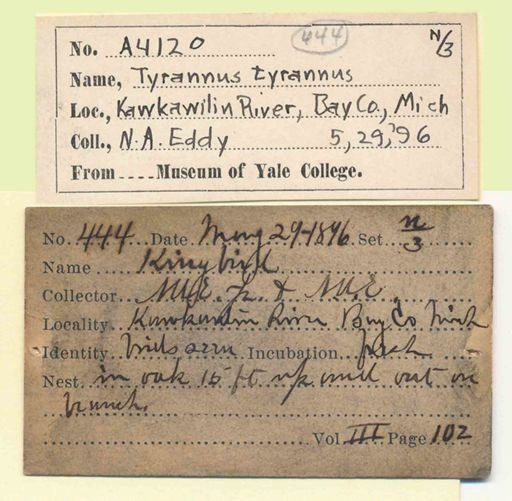 No. A4120 444 N/3
Name, Tyrannus tyrannus
Loc., Kawkawilin River, Bay Co., Mich
Coll., N.A. Eddy 5, 29, '96
From .... Museum of Yale College.
No. 444 Date May 29-1896 Set n/3
Name Kingbird
Collector
Locality Kawkawlin River Bay Co Mich
Identity birds seen Incubation fresh
Nest in oak 15 ft up well out on
branch.
Vol III Page 102